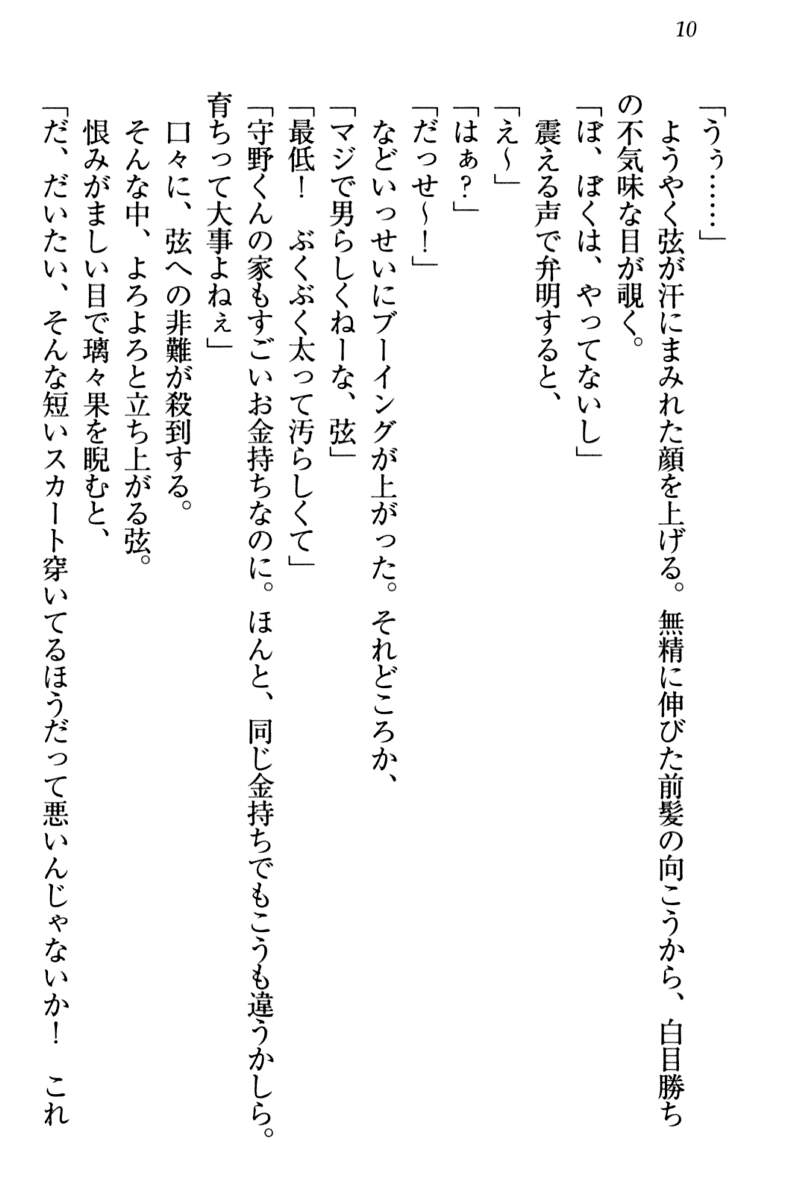 10
「うぅ……」
　ようやく弦が汗にまみれた顔を上げる。無精に伸びた前髪の向こうから、白目勝ち
の不気味な目が覗く。
「ぼ、ぼくは、やってないし」
　震える声で弁明すると、
「え～」
「はぁ？」
「だっせ～！」
　などいっせいにブーイングが上がった。それどころか、
「マジで男らしくねーな、弦」
「最低！　ぶくぶく太って汚らしくて」
「守野くんの家もすごいお金持ちなのに。ほんと、同じ金持ちでもこうも違うかしら。
育ちって大事よねぇ」
　口々に、弦への非難が殺到する。
　そんな中、よろよろと立ち上がる弦。
　恨みがましい目で璃々果を睨むと、
「だ、だいたい、そんな短いスカート穿いてるほうだって悪いんじゃないか！　これ